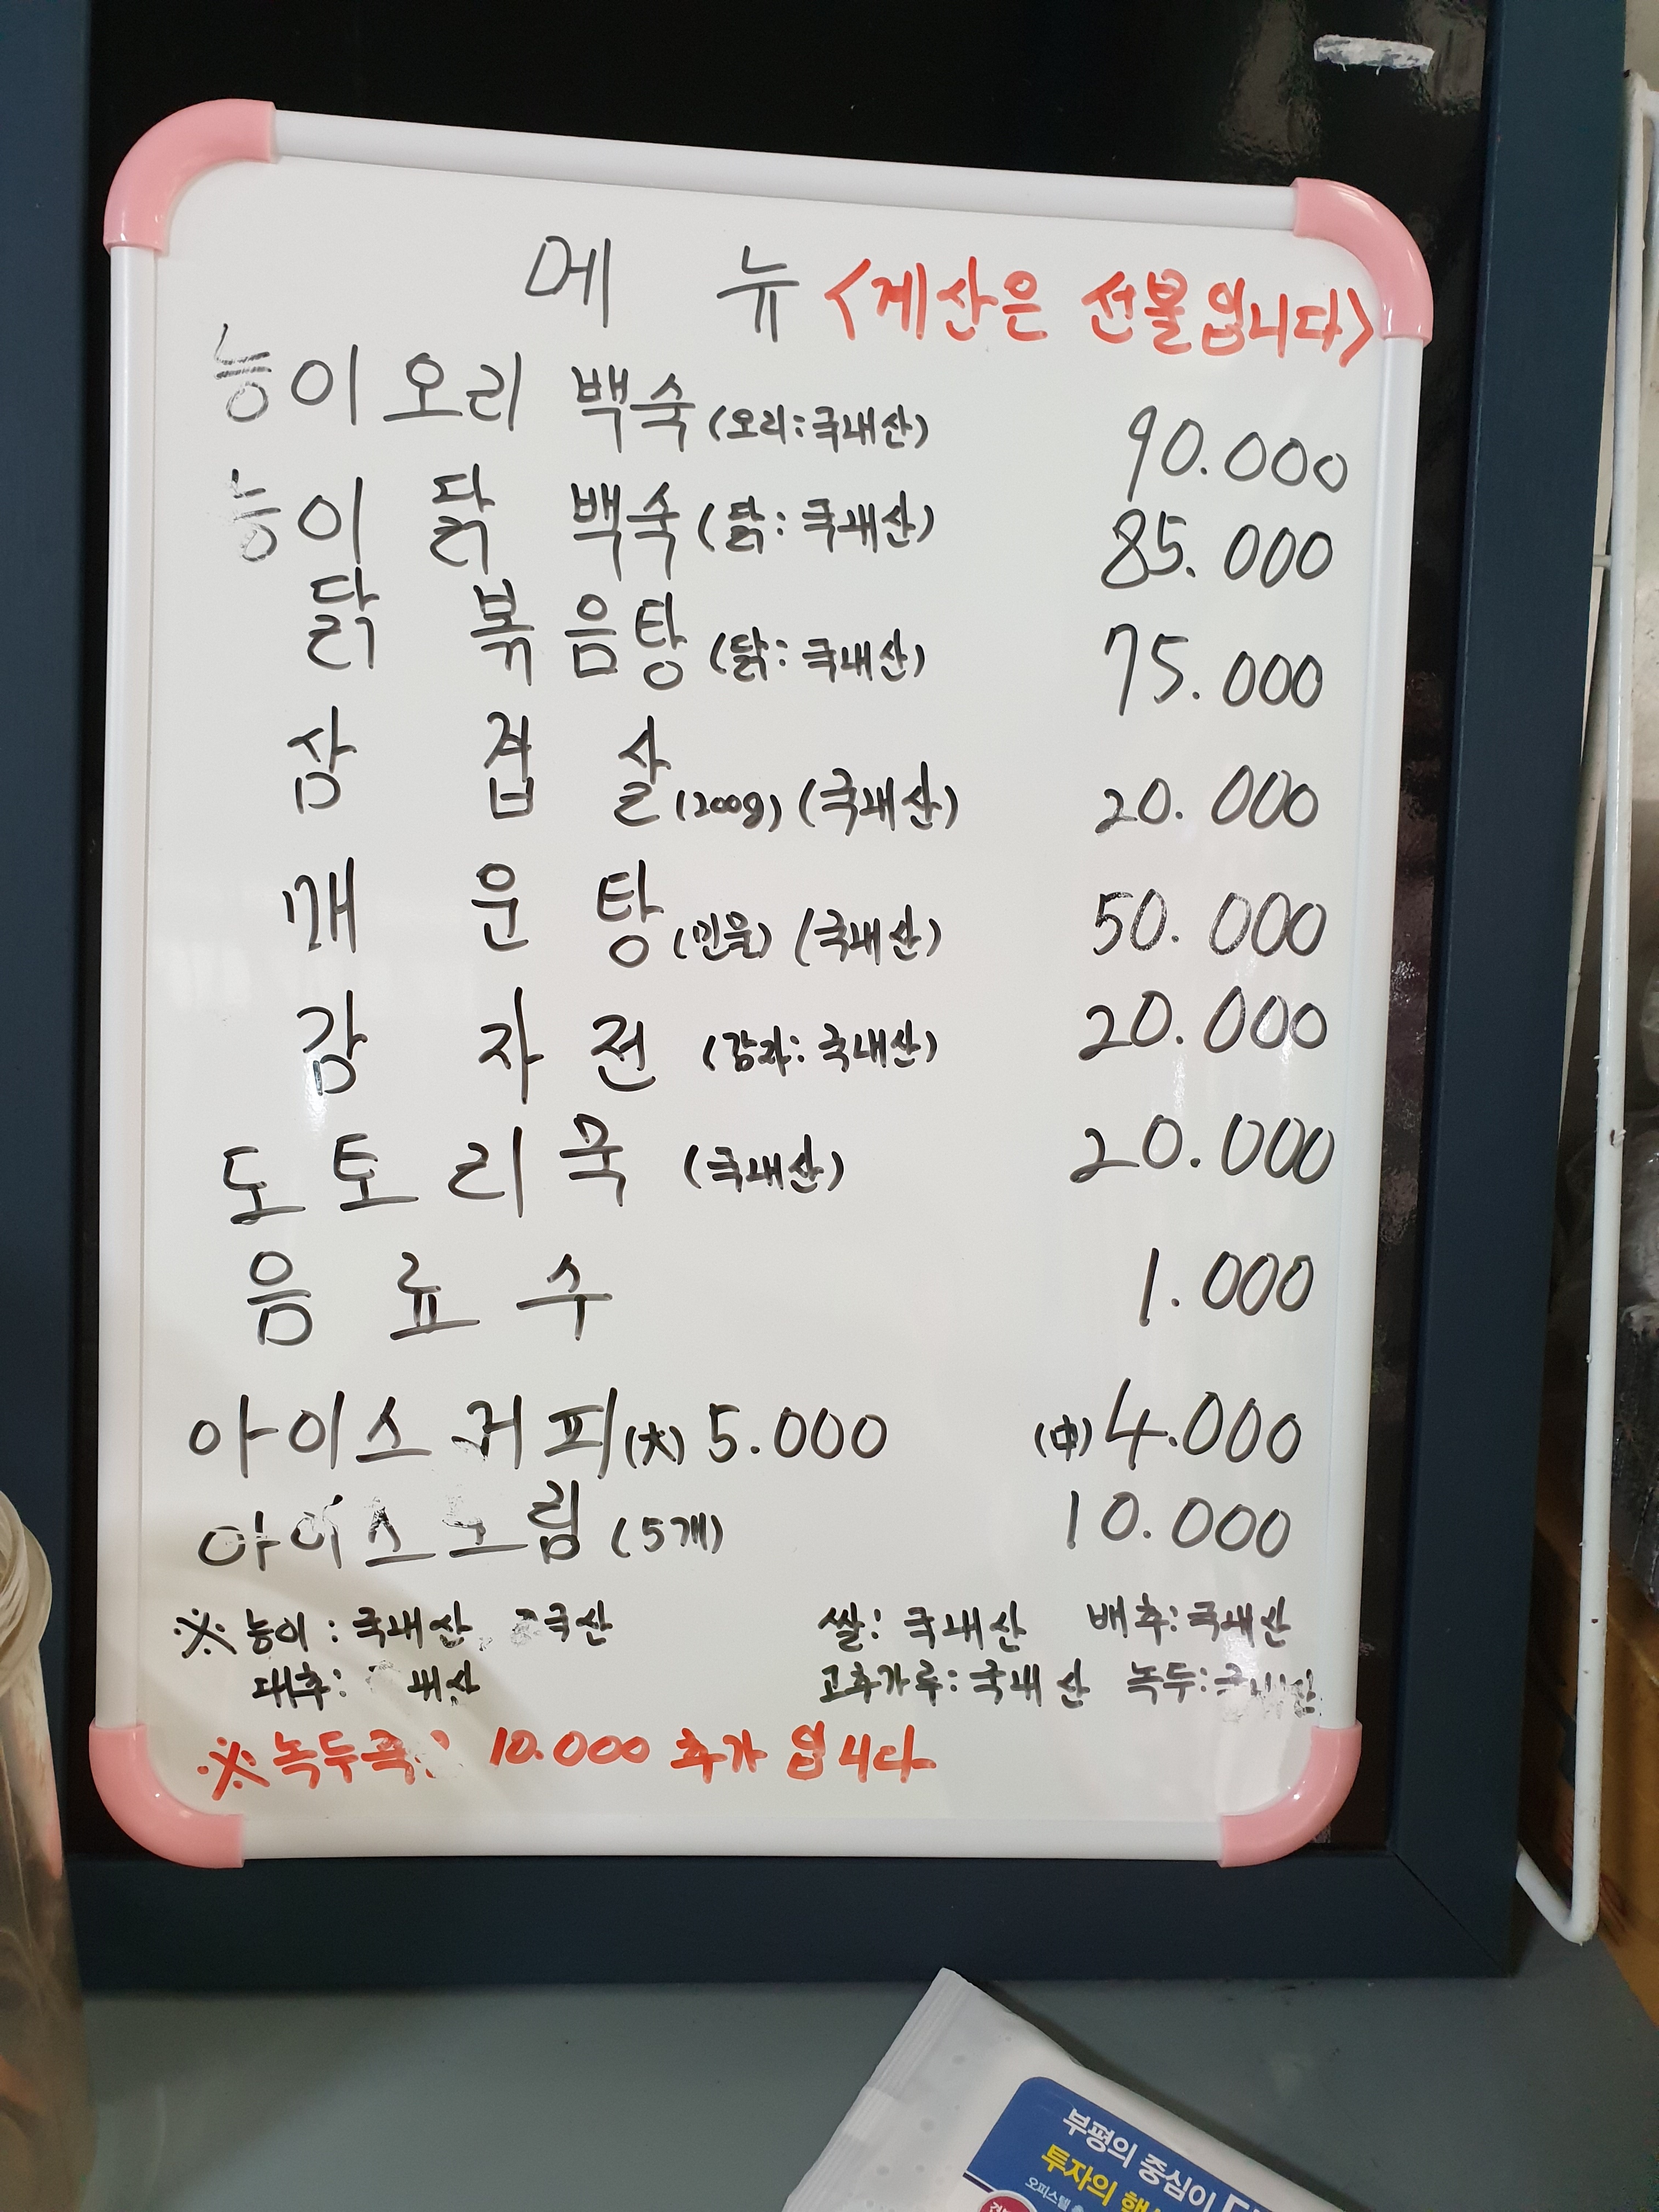 메 뉴 <계산은 선불입니다>
능이오리 백숙 (오리:국내산) 90.000
능이 닭 백숙 (닭:국내산) 85.000
닭 볶음탕 (닭:국내산) 75.000
삼 겹 살 (200g) (국내산) 20.000
매 운 탕 (민물) (국내산) 50.000
감 자 전 (감자:국내산) 20.000
도 토 리 묵 (국내산) 20.000
음 료 수 1.000
아이스 커피 (大) 5.000 (中) 4.000
아이스 림 (5개) 10.000
※ 능이 : 국내산, 쌀: 국내산 배추: 국내산
대추: 고추가루: 국내산 녹두:
※ 녹두죽: 10.000 추가 입니다
부평의 중심이
투자의
오피스텔